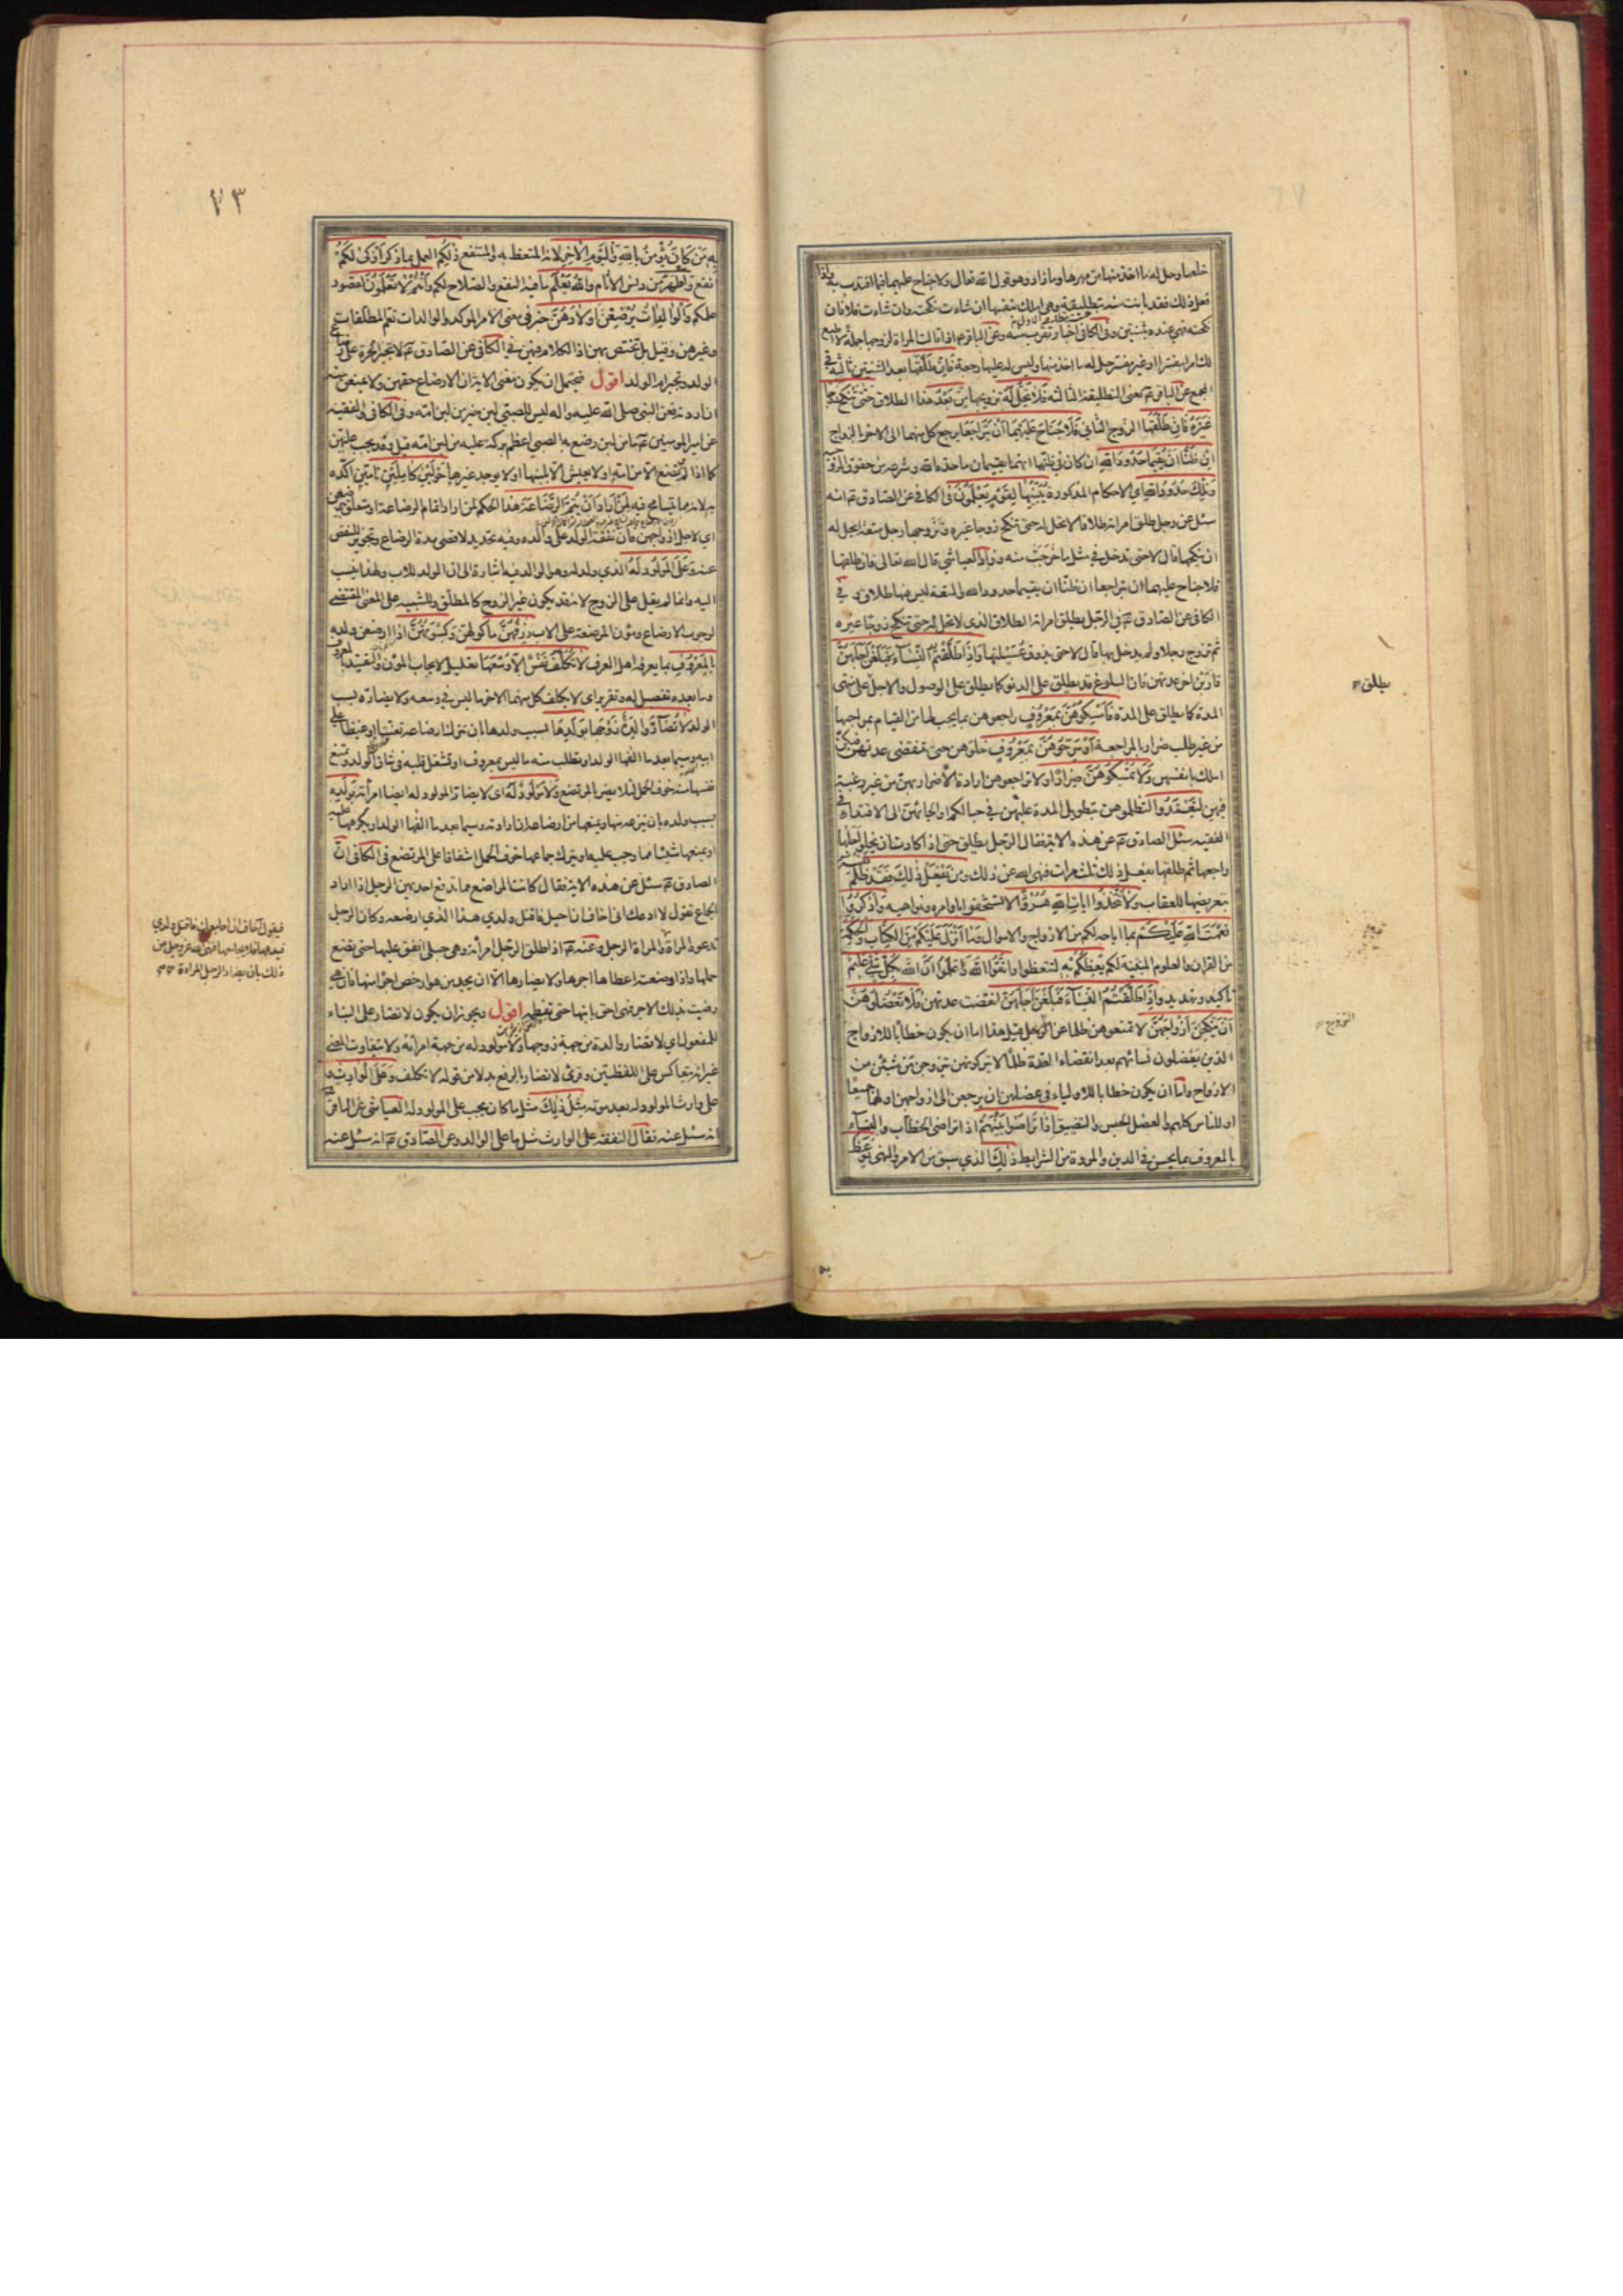 خلعها وحل له ما اخذ منها من مهرها وما زاد وهو قول الله تعالى ولا جناح عليهما فيما افتدت به واذا
فعل ذلك فقد بانت منه بتطليقة وهي املك بنفسها ان شاءت نكحته وان شاءت فلا فان
نكحته فهي عنده بثنتين وفي الكافي اخبار تقرب منه وعن الباقر عم اذا قالت المراة لزوجها جملة لا اطيع
لك امرا مفسرا او غير مفسر حل له ما اخذ منها وليس له عليها رجعة فَاِنْ طَلَّقَهَا بعد الثنتين ثالثة في
المجمع عن الباقر عم يعني التطليقة الثالثة فَلَا تَحِلُّ لَهُ تزويجها مِنْ بَعْدُ هذا الطلاق حَتّىٰ تَنْكِحَ زَوْجًا
غَيْرَهُ فَاِنْ طَلَّقَهَا الزوج الثاني فَلَا جُنَاحَ عَلَيْهِمَا اَنْ يَتَرَاجَعَا يرجع كل منهما الى الاخر بالزواج
اِنْ ظَنَّا اَنْ يُقِيمَا حُدُودَ اللهِ ان كان في ظنهما انهما يقيمان ما حده الله وشرعه من حقوق الزوجية
وَتِلْكَ حُدُودُ اللهِ اي الاحكام المذكورة يُبَيِّنُهَا لِقَوْمٍ يَعْلَمُونَ في الكافي عن الصادق عم انه
سئل عن رجل طلق امراته طلاقا لا تحل له حتى تنكح زوجا غيره وتزوجها رجل متعة ايحل له
ان ينكحها قال لا حتى تدخل في مثل ما خرجت منه وزاد العياشي قال الله تعالى فان طلقها
فلا جناح عليهما ان يتراجعا ان ظنا ان يقيما حدود الله والمتعة ليس فيها طلاق وفي
الكافي عن الصادق عم في الرجل يطلق امراته الطلاق الذي لا تحل له حتى تنكح زوجا غيره
ثم تزوج رجلا ولم يدخل بها قال لا حتى يذوق عسيلتها وَاِذَا طَلَّقْتُمُ النِّسَاءَ فَبَلَغْنَ اَجَلَهُنَّ
قاربن اخر عدتهن فان البلوغ قد يطلق على الدنو كما يطلق على الوصول والاجل على منتهى
المدة كما يطلق على المدة فَاَمْسِكُوهُنَّ بِمَعْرُوفٍ راجعوهن بما يجب لها من القيام بمواجبها
من غير طلب ضرار بالمراجعة اَوْ سَرِّحُوهُنَّ بِمَعْرُوفٍ خلوهن حتى تنقضي عدتهن فيكن
املك بانفسهن وَلَا تُمْسِكُوهُنَّ ضِرَارًا ولا تراجعوهن ارادة الاضرار بهن من غير رغبة
فيهن لِتَعْتَدُوا لتظلموهن بتطويل المدة عليهن في حبالكم او الجائهن الى الافتداء في
الفقيه سئل الصادق عم عن هذه الاية فقال الرجل يطلق حتى اذا كادت ان يخلو اجلها
راجعها ثم طلقها يفعل ذلك ثلث مرات فنهى الله عن ذلك وَمَنْ يَفْعَلْ ذٰلِكَ فَقَدْ ظَلَمَ نفسه
بتعريضها للعقاب وَلَا تَتَّخِذُوا اٰيَاتِ اللهِ هُزُوًا لا تستخفوا باوامره ونواهيه وَاذْكُرُوا
نِعْمَتَ اللهِ عَلَيْكُمْ بما اباحه لكم من الازواج والاموال وَمَا اَنْزَلَ عَلَيْكُمْ مِنَ الْكِتَابِ وَالْحِكْمَةِ
من القران والعلوم المبينة لكم يَعِظُكُمْ بِهِ لتتعظوا وَاتَّقُوا اللهَ وَاعْلَمُوا اَنَّ اللهَ بِكُلِّ شَيْءٍ عَلِيمٌ
تاكيد وتهديد وَاِذَا طَلَّقْتُمُ النِّسَاءَ فَبَلَغْنَ اَجَلَهُنَّ انقضت عدتهن فَلَا تَعْضُلُوهُنَّ
اَنْ يَنْكِحْنَ اَزْوَاجَهُنَّ لا تمنعوهن ظلما عن التزوج قيل هذا اما ان يكون خطابا للازواج
الذين يعضلون نسائهم بعد انقضاء العدة ظلما لا يتركونهن يتزوجن من شئن من
الازواج واما ان يكون خطابا للاولياء في عضلهن ان يرجعن الى ازواجهن او لهما جميعا
او للناس كلهم والعضل الحبس والتضييق اِذَا تَرَاضَوْا بَيْنَهُمْ اذا تراضى الخطاب والنساء
بِالْمَعْرُوفِ بما يحسن في الدين والمروة من الشرايط ذٰلِكَ الذي سبق من الامر والنهي يُوعَظُ
يطلق
التزوج
٧٣
بِهِ مَنْ كَانَ مِنْكُمْ يُؤْمِنُ بِاللهِ وَالْيَوْمِ الْاٰخِرِ لانه المتعظ به والمنتفع ذٰلِكُمْ العمل بما ذكر اَزْكىٰ لَكُمْ
انفع وَاَطْهَرُ من دنس الاثام وَاللهُ يَعْلَمُ ما فيه النفع والصلاح لكم وَاَنْتُمْ لَا تَعْلَمُونَ لقصور
علمكم وَالْوَالِدَاتُ يُرْضِعْنَ اَوْلَادَهُنَّ خبر في معنى الامر المؤكد والوالدات تعم المطلقات
وغيرهن وقيل بل تختص بهن اذ الكلام فيهن في الكافي عن الصادق عم لا تجبر الحرة على رضاع
الولد وتجبر ام الولد اقول فيحتمل ان يكون معنى الاية ان الارضاع حقهن ولا يمنعن منه
ان اردنه فعن النبي صلى الله عليه واله ليس للصبي لبن خير من لبن امه وفي الكافي والفقيه
عن امير المومنين عم ما من لبن رضع به الصبي اعظم بركة عليه من لبن امه قيل وقد يجب عليهن
كما اذا لم يرتضع الا من امه او لا يعيش الا بلبنها او لا يوجد غيرها حَوْلَيْنِ كَامِلَيْنِ تامين اكده
به لانه مما يتسامح فيه لِمَنْ اَرَادَ اَنْ يُتِمَّ الرَّضَاعَةَ هذا الحكم لمن اراد اتمام الرضاعة او متعلق بيرضعن
اي لاجل ازواجهن فان نفقة الولد على والده وفيه تحديد لاقصى مدة الرضاع وتجويز للنقص
عنه وَعَلَى الْمَوْلُودِ لَهُ الذي ولد له وهو الوالد فيه اشارة الى ان الولد للاب ولهذا ينسب
اليه وانما لم يقل على الزوج لانه قد يكون غير الزوج كالمطلق وللتنبيه على المعنى المقتضي
لوجوب الارضاع ومؤن المرضعة على الاب رِزْقُهُنَّ ماكولهن وَكِسْوَتُهُنَّ اذا ارضعن ولده
بِالْمَعْرُوفِ بما يعرفه اهل العرف لَا تُكَلَّفُ نَفْسٌ اِلَّا وُسْعَهَا تعليل لايجاب المؤن والتقييد بالمعروف
وما بعده تفصيل له وتقرير اي لا يكلف كل منهما الاخر ما ليس في وسعه ولا يضاره بسبب
الولد لَا تُضَارَّ وَالِدَةٌ زوجها بِوَلَدِهَا بسبب ولدها بان تترك ارضاعه تعنتا او غيظا على
ابيه وسيما بعد ما الفها الولد او تطلب منه ما ليس بمعروف او تشغل قلبه في شان الولد او تمنع
نفسها منه خوف الحمل لئلا يضر بالمرتضع وَلَا مَوْلُودٌ لَهُ اي لا يضار المولود له ايضا امراته بِوَلَدِهِ
بسبب ولده بان ينزعه منها ويمنعها من ارضاعه ان ارادته وسيما بعد ما الفها الولد او يكرهها عليه
او يمنعها شيئا مما وجب عليه او يترك جماعها خوف الحمل اشفاقا على المرتضع في الكافي ان
الصادق عم سئل عن هذه الاية فقال كانت المراضع مما تدفع احديهن الرجل اذا اراد
الجماع تقول لا ادعك اني اخاف ان احبل فاقتل ولدي هذا الذي ارضعه وكان الرجل
تدعوه المراة والمراة الرجل وعنه عم اذا طلق الرجل امراته وهي حبلى انفق عليها حتى تضع
حملها واذا وضعته اعطاها اجرها ولا يضارها الا ان يجد من هو ارخص اجرا منها فان هي
رضيت بذلك الاجر فهي احق بابنها حتى تفطمه اقول ويجوز ان يكون لا تضار على البناء
للمفعول اي لا تضار والدة من جهة زوجها ولا مولود له من جهة امراته ولا يتفاوت المعنى
غير انه يتعاكس على اللفظتين وقرئ لا تضار بالرفع بدلا من قوله لا تكلف وَعَلَى الْوَارِثِ و
على وارث المولود له بعد موته مِثْلُ ذٰلِكَ مثل ما كان يجب على المولود له العياشي عن الباقر عم
انه سئل عنه فقال النفقة على الوارث مثل ما على الوالد وعن الصادق عم انه سئل عنه
فيقول اخاف ان اجامعك فاقتل ولدي
فيدعها فلا يجامعها فنهى الله عز وجل عن
ذلك بان يضار الرجل المراة